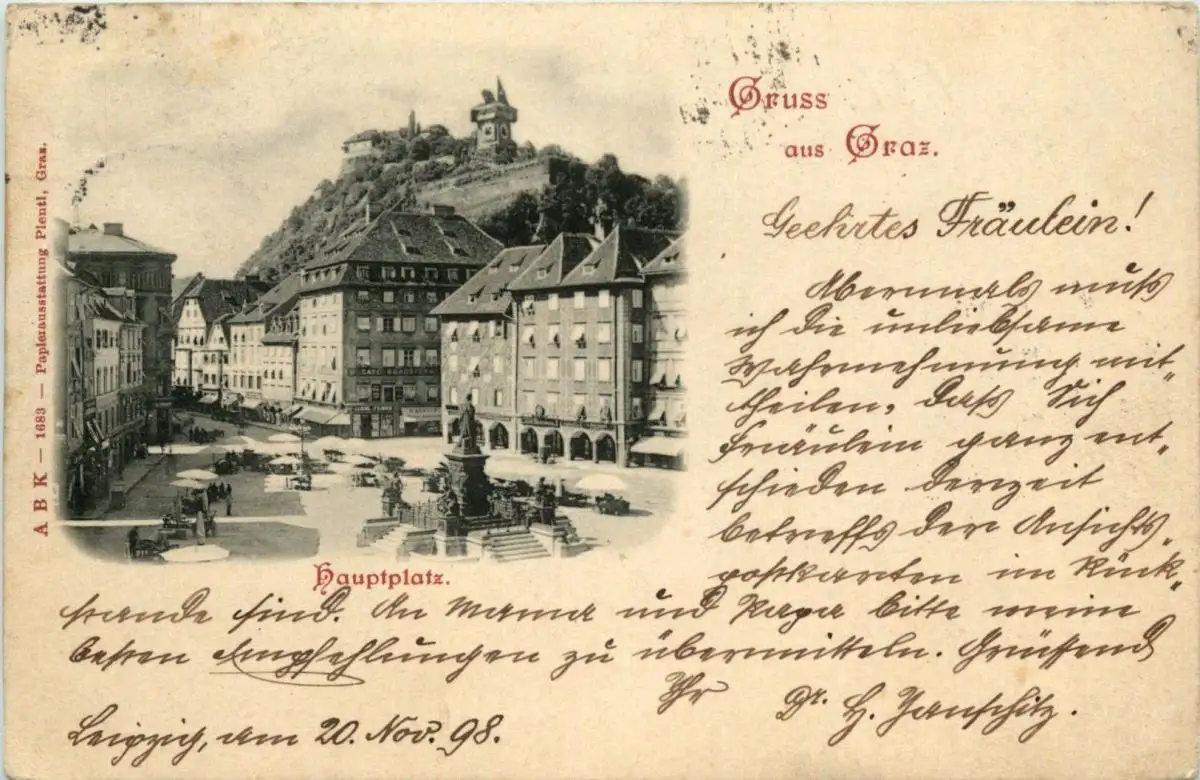 Gruss
aus Graz.
A B K — 1683 — Papierausstattung Plentl, Graz.
Hauptplatz.
Geehrtes Fräulein!
Abermals muß
ich die unliebsame
Wahrnehmung mit-
theilen, daß Sich
Fräulein ganz ent-
schieden derzeit
betreffs der Ansichts-
postkarten im Rück-
stande sind. An Mama und Papa bitte meine
besten Empfehlungen zu übermitteln. Grüssend
Ihr Dr. H. Janschitz.
Leipzig, am 20. Nov. 98.